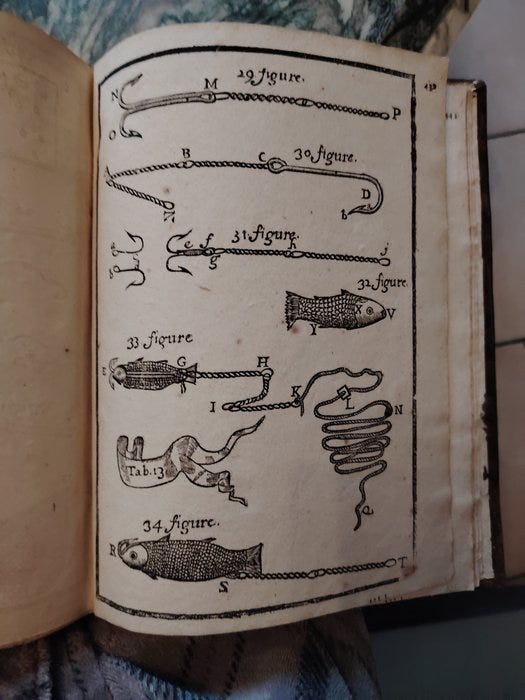 29 figure.
N
M
P
O
30 figure.
B
C
D
b
N
31 figure.
e
f
g
h
j
32 figure.
X
V
Y
33 figure
G
H
I
K
L
N
Tab.13
34 figure.
R
S
T